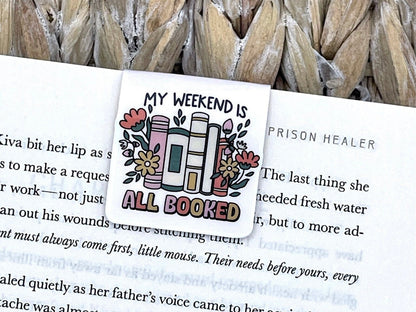 MY WEEKEND IS
ALL BOOKED
PRISON HEALER
Kiva bit her lip as s
The last she
s to make a reques
needed fresh water
r work—not just
r, but to more ad-
an out his wounds before stitching them.
nt must always come first, little mouse. Their needs before yours, every
aled quietly as her father's voice came to her
tache was almos